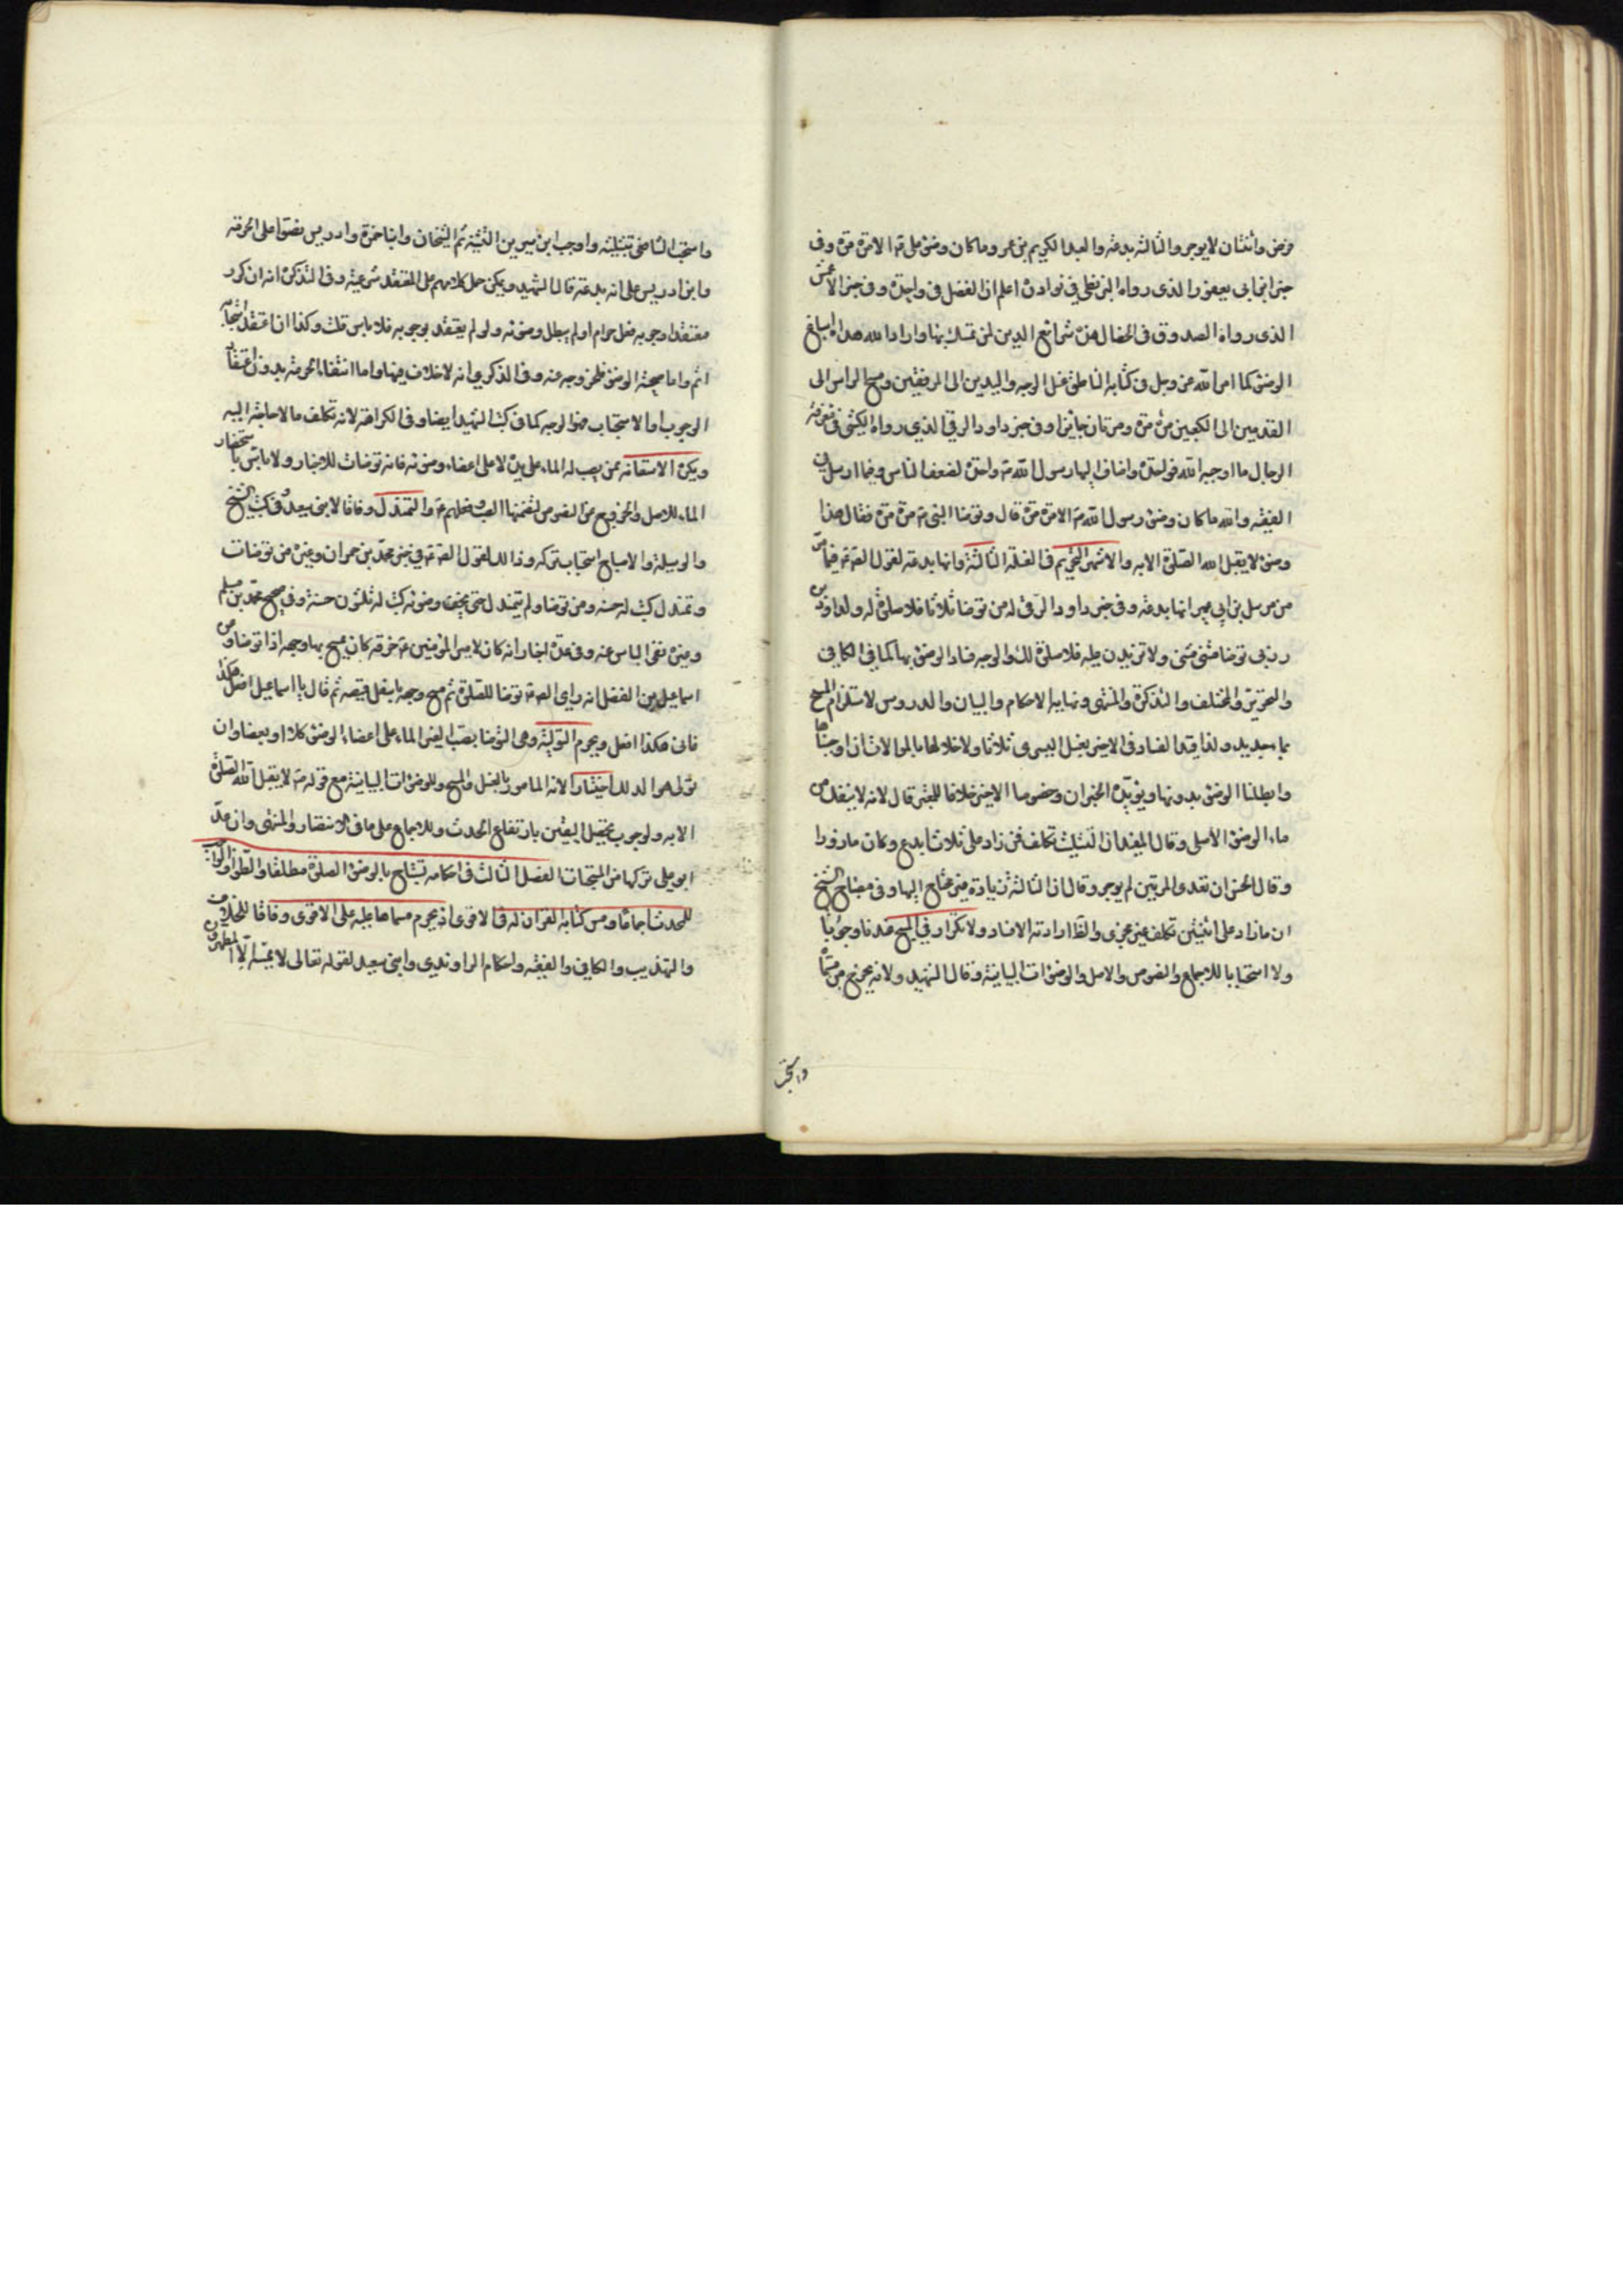 فرض واثنتان لا يوجر والثالثة بدعة والعبد الكريم بن عمرو ما كان وضوء علي ع الا مرة مرة وفي
خبر ابن ابي يعفور الذي رواه البزنطي في نوادره اعلم ان الفضل في واحدة وفي خبر الاعمش
الذي رواه الصدوق في الخصال هذه شرائع الدين لمن تمسك بها واراد الله هداه اسباغ
الوضوء كما امر الله عز وجل في كتابه الناطق غسل الوجه واليدين الى المرفقين ومسح الراس الى
القدمين الى الكعبين مرة مرة ومرتان جائز وفي خبر داود الرقي الذي رواه الكشي في معرفة
الرجال ما اوجبه الله فواحدة واضاف اليها رسول الله ص واحدة لضعف الناس وفيما ارسل في
الفقيه والله ما كان وضوء رسول الله ص الا مرة مرة قال وتوضا النبي ص مرة مرة فقال هذا
وضوء لا يقبل الله الصلوة الا به والاشهر التحريم في الغسلة الثالثة وانها بدعة لقول الصادق ع فيما مر
من مرسل بن ابي عمير انها بدعة وفي خبر داود الرقي له من توضا ثلاثا فلا صلوة له ولداود بن
زربي توضا مثنى مثنى ولا تزيدن عليه فلا صلوة لك والوجه فساد الوضوء بها كما في الكافي
والتحرير والمختلف والتذكرة والمنتهى ونهاية الاحكام والبيان والدروس لاستلزام المسح
بماء جديد ولذا قيد الفساد في الاخير بغسل اليسرى ثلاثا ولاخلالها بالموالاة ان اوجبناها
وابطلنا الوضوء بدونها ويؤيده الخبران وخصوصا الاخير خلافا للمعتبر قال لانه لا ينفك من
ماء الوضوء الاصلي وقال المفيد ان التثليث تكلف فمن زاد على ثلاث ابدع وكان مازورا
وقال الحسن ان تعدى المرتين لم يوجر وقال ان الثالثة زيادة غير محتاج اليها وفي مصباح الشيخ
ان ما زاد على اثنتين تكلف غير مجزي والظ ارادته الافساد ولا تكرار في المسح عندنا وجوبا
ولا استحبابا للاجماع والنصوص والاصل والوضوءات البيانية وقال الشهيد ولانه يخرج من مسماه
واستحب الشافعي تثليثه واوجب ابن سيرين التثنية ثم الشيخان وابنا حمزة وادريس نصوا على الحرمة
وابن ادريس على انه بدعة قال الشهيد ويمكن حمل كلامهم على المعتقد شرعيته وفي التذكرة انه ان كرر
معتقدا وجوبه فعل حراما ولم يبطل وضوئه ولو لم يعتقد بوجوبه فلا باس قلت وكذا ان اعتقد استحبابه
اثم واما صحة الوضوء فلخروجه عنه وفي الذكرى انه لا خلاف فيها واما انتفاء الحرمة بدون اعتقاد
الوجوب او الاستحباب فهو الوجه كما في كتب الشهيد ايضا وفي الكراهة لانه تكلف ما لا حاجة اليه
ويكره الاستعانة بمن يصب له الماء على يده لا على اعضاء وضوئه فانه توضات للاخبار ولا باس باستحضار
الماء للاصل والخروج عن النصوص لتضمنها الصب والتمندل وفاقا لابني سعيد وكتب الشيخ
والوسيلة والاصباح استحباب تركه وذا لقول الصادق ع في خبر محمد بن حمران وغيره من توضات
وتمندل كتب له حسنة ومن توضا ولم يتمندل حتى يجف وضوئه كتب له ثلثون حسنة وفي صحيح محمد بن مسلم
وغيره نفي الباس عنه وفي عدة اخبار انه كان لامير المؤمنين ع خرقة كان يمسح بها وجهه اذا توضا وعن
اسماعيل بن الفضل انه راى الصادق ع توضا للصلوة ثم مسح وجهه باسفل قميصه ثم قال يا اسماعيل افعل هكذا
فاني هكذا افعل ويحرم التولية وهي التوضا بصب الغير الماء على اعضاء الوضوء كلا او بعضا وان
تولى هو الدلك اختيارا لانه المامور بالغسل والمسح وللوضوءات البيانية مع قوله ص لا يقبل الله الصلوة
الا به ولوجوب تحصيل اليقين بارتفاع الحدث وللاجماع على ما في الانتصار والمنتهى وان عد
ابو علي تركها من المستحبات الفصل الثالث في احكامه يستباح بالوضوء الصلوة مطلقا والطواف الواجب
للمحدث اجماعا ومس كتابة القران له في الاقوى اذ يحرم مسها عليه على الاقوى وفاقا للخلاف
والتهذيب والكافي والفقيه واحكام الراوندي وابني سعيد لقوله تعالى لا يمسه الا المطهرون